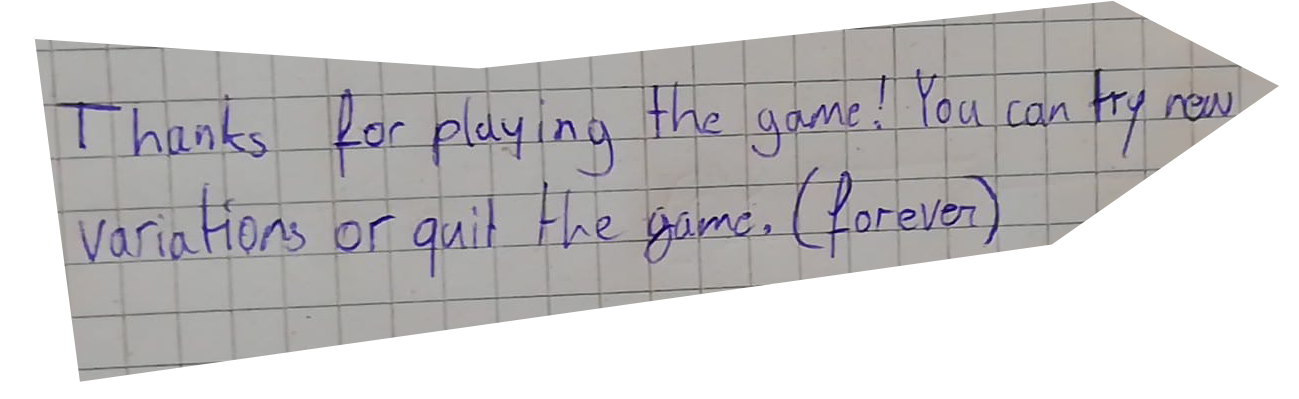 Thanks for playing the game! You can try new
variations or quit the game. (forever)